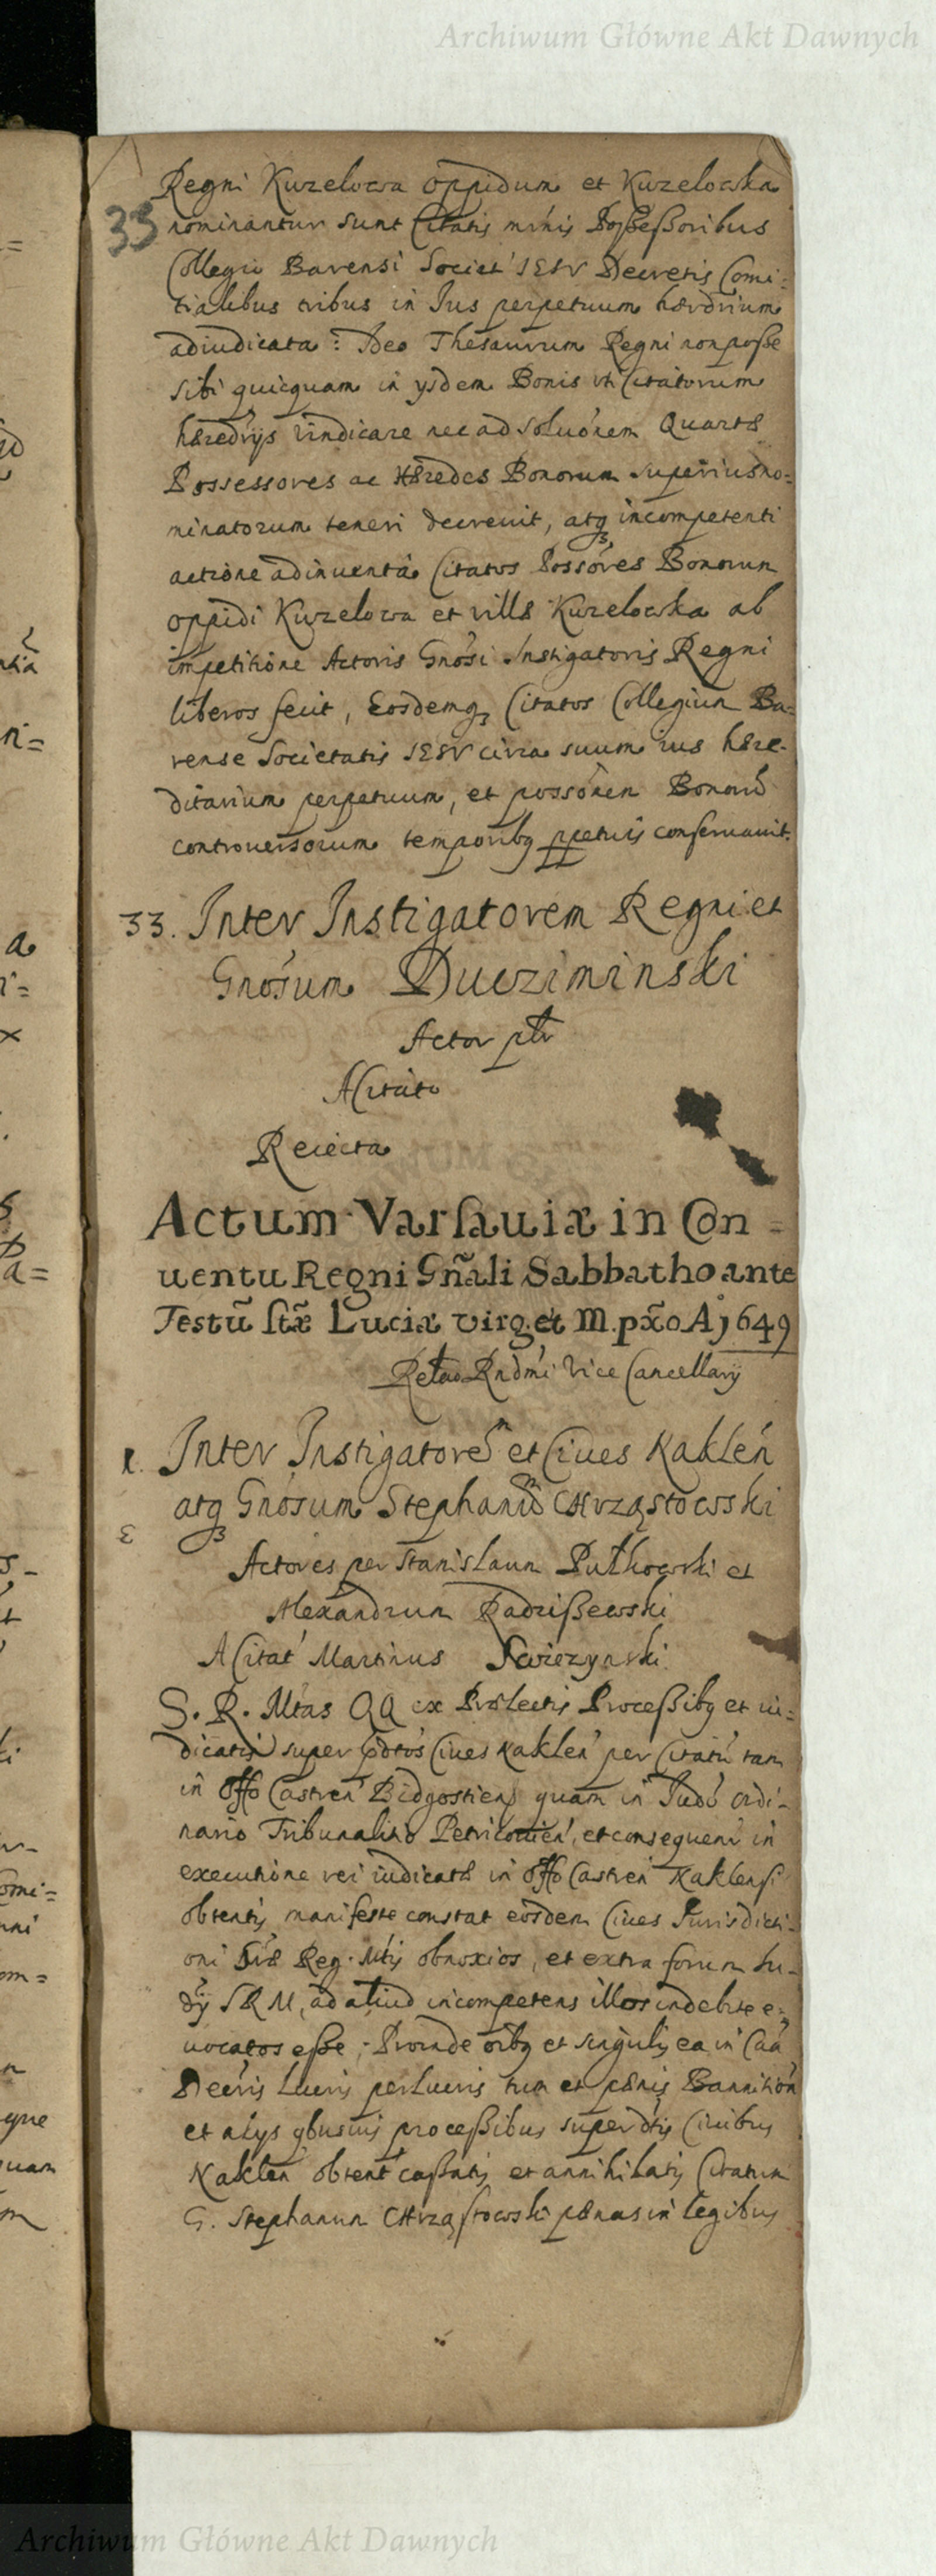 Archiwum Główne Akt Dawnych
Regni Kuzelowa oppidum et Kuzelowka
33 nominantur sunt Citatis Possessoribus
Collegii Barensi Societ' IESV Decretis Comi:
tialibus tribus in Ius perpetuum
adiudicata: Ideo Thesaurum Regni non posse
sibi quicquam in ysdem Bonis vti Citatorum
vindicare nec ad Quartæ
Possessores ac Hæredes Bonorum superius no=
minatorum teneri decreuit, atq₃ incompetenti
actione adinuenta Citatos Possores Bonorum
oppidi Kuzelowa et villæ Kuzelowka ab
impetitione Actoris Gnosi Instigatoris Regni
liberos fecit, Eosdemq₃ Citatos Collegium Ba=
rense Societatis IESV circa suum ius hære-
ditarium perpetuum, et possonem Bonorũ
controuersorum temporibq ppetuis conseruauit.
33. Inter Instigatorem Regni et
Gnosum Ducziminski
Actor ptr
A Citato
Reiecta
Actum Varsauiæ in Con=
uentu Regni Gñali Sabbatho ante
Festũ stæ Luciæ virg. et M. pxo A 1649
Relao Rndmi Vice Cancellarij
1. Inter Instigatorem et Ciues Naklen
atq₃ Gnosum Stephanũ Chrząstowski
Actores per Stanislaum Putkowski et
Alexandrum Radziszewski
A Citat' Martinus Swiezynski.
S. R. Mtas ex Prolectis Processibq et iu=
dicatis super Ciues Naklen' per Citatũ tam
in Offo Castren' Bidgostien quam in Judo ordi-
nario Tribunalitio Petricouien', et consequent' in
executione rei iudicatæ in offo Castren Naklensi
obtentis manifeste constat eosdem Ciues Jurisdicti-
oni Suæ Reg. Mtis obnoxios, et extra forum Iu-
dij S R M, ad aliud incompetens illos indebite e=
uocatos esse; Proinde oibq et singulis ea in Caa
Decris Lucris perlucris tum et pænis Bannition
et alys processibus super Ciuibus
Naklen obtent' cassatis et annihilatis Citatum
G. Stephanum Chrząstowski pænas in legibus
Archiwum Główne Akt Dawnych